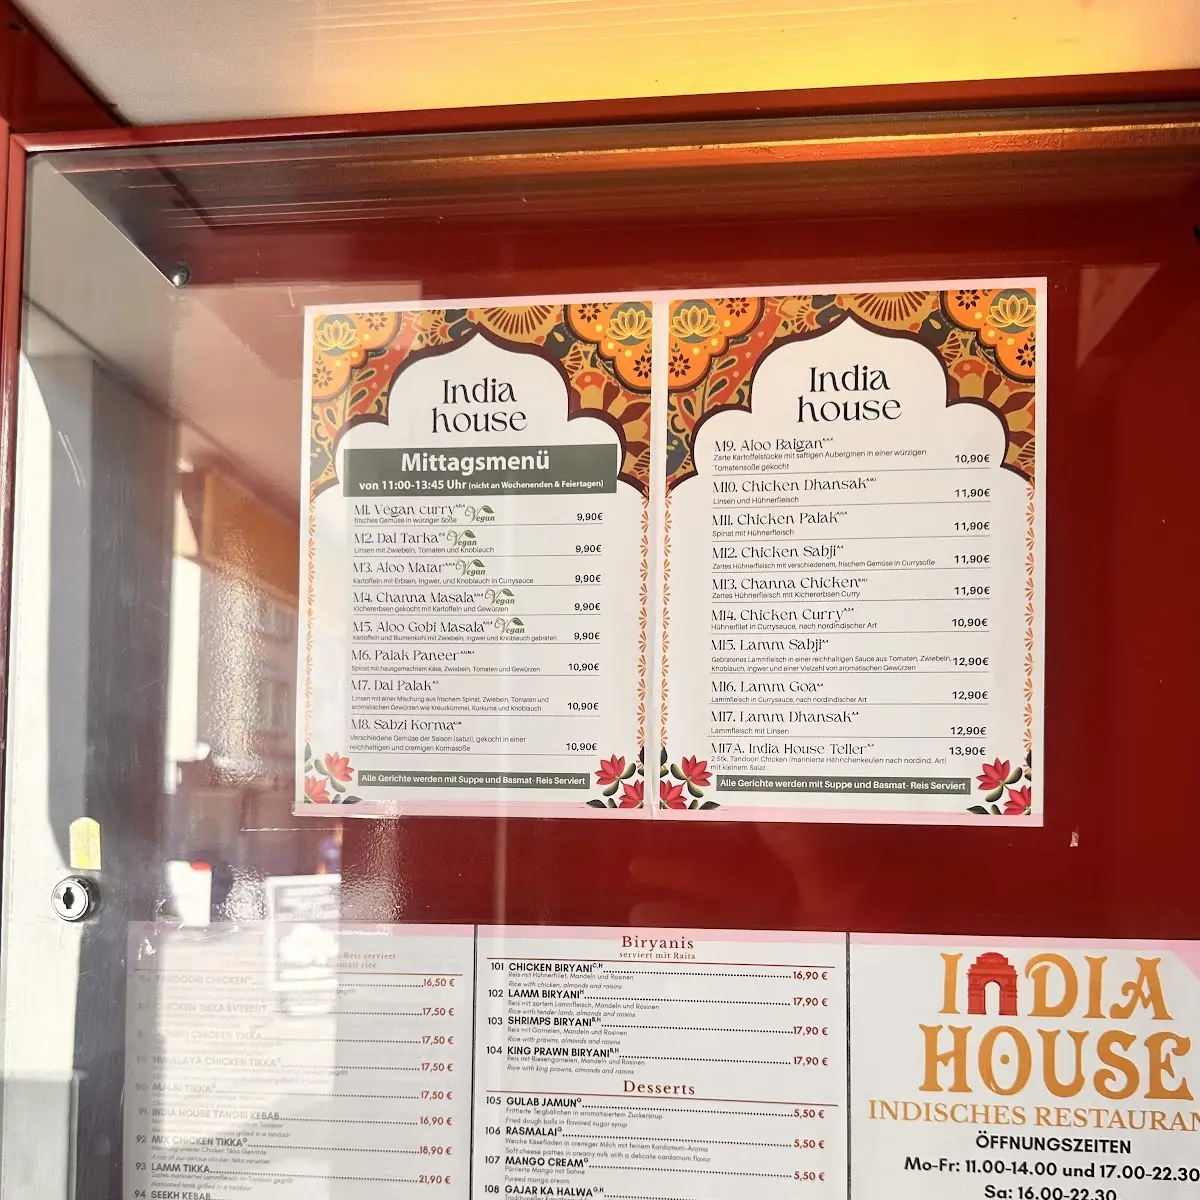 India
house
Mittagsmenü
von 11:00-13:45 Uhr (nicht an Wochenenden & Feiertagen)
M1. Vegan curry Vegan
frisches Gemüse in würziger Soße 9,90€
M2. Dal Tarka Vegan
Linsen mit Zwiebeln, Tomaten und Knoblauch 9,90€
M3. Aloo Matar Vegan
Kartoffeln mit Erbsen, Ingwer, und Knoblauch in Currysauce 9,90€
M4. Channa Masala Vegan
Kichererbsen gekocht mit Kartoffeln und Gewürzen 9,90€
M5. Aloo Gobi Masala Vegan
Kartoffeln und Blumenkohl mit Zwiebeln, Ingwer und Knoblauch gebraten 9,90€
M6. Palak Paneer
Spinat mit hausgemachtem Käse, Zwiebeln, Tomaten und Gewürzen 10,90€
M7. Dal Palak
Linsen mit einer Mischung aus frischem Spinat, Zwiebeln, Tomaten und
aromatischen Gewürzen wie Kreuzkümmel, Kurkuma und Knoblauch 10,90€
M8. Sabzi Korma
Verschiedene Gemüse der Saison (sabzi), gekocht in einer
reichhaltigen und cremigen Kormasoße 10,90€
Alle Gerichte werden mit Suppe und Basmat- Reis Serviert
India
house
M9. Aloo Baigan
Zarte Kartoffelstücke mit saftigen Auberginen in einer würzigen
Tomatensoße gekocht 10,90€
M10. Chicken Dhansak
Linsen und Hühnerfleisch 11,90€
M11. Chicken Palak
Spinat mit Hühnerfleisch 11,90€
M12. Chicken Sabji
Zartes Hühnerfleisch mit verschiedenem, frischem Gemüse in Currysoße 11,90€
M13. Channa Chicken
Zartes Hühnerfleisch mit Kichererbsen Curry 11,90€
M14. Chicken Curry
Hühnerfilet in Currysauce, nach nordindischer Art 10,90€
M15. Lamm Sabji
Gebratenes Lammfleisch in einer reichhaltigen Sauce aus Tomaten, Zwiebeln, 12,90€
Knoblauch, Ingwer und einer Vielzahl von aromatischen Gewürzen
M16. Lamm Goa
Lammfleisch in Currysauce, nach nordindischer Art 12,90€
M17. Lamm Dhansak
Lammfleisch mit Linsen 12,90€
M17A. India House Teller 13,90€
2 Stk. Tandoori Chicken (marinierte Hähnchenkeulen nach nordind. Art)
mit kleinem Salat
Alle Gerichte werden mit Suppe und Basmat- Reis Serviert
Reis serviert
TANDOORI CHICKEN 16,50 €
CHICKEN TIKKA EVEREST 17,50 €
CHICKEN TIKKA 17,50 €
HIMALAYA CHICKEN TIKKA 17,50 €
90 MALAI TIKKA 17,50 €
91 INDIA HOUSE TANGRI KEBAB 16,90 €
92 MIX CHICKEN TIKKA 18,90 €
93 LAMM TIKKA 21,90 €
94 SEEKH KEBAB
Biryanis
serviert mit Raita
101 CHICKEN BIRYANI G,H 16,90 €
Reis mit Hühnerfilet, Mandeln und Rosinen
Rice with chicken, almonds and raisins
102 LAMM BIRYANI H 17,90 €
Reis mit zartem Lammfleisch, Mandeln und Rosinen
Rice with tender lamb, almonds and raisins
103 SHRIMPS BIRYANI B,H 17,90 €
Reis mit Garnelen, Mandeln und Rosinen
Rice with prawns, almonds and raisins
104 KING PRAWN BIRYANI B,H 17,90 €
Reis mit Riesengarnelen, Mandeln und Rosinen
Rice with king prawns, almonds and raisins
Desserts
105 GULAB JAMUN G 5,50 €
Frittierte Teigbällchen in aromatisiertem Zuckersirup
Fried dough balls in flavored sugar syrup
106 RASMALAI G 5,50 €
Weiche Käsefladen in cremiger Milch mit feinem Kardamom-Aroma
Soft cheese patties in creamy milk with a delicate cardamom flavor
107 MANGO CREAM G 5,50 €
Pürierte Mango mit Sahne
Pureed mango cream
108 GAJAR KA HALWA G,H
INDIA
HOUSE
INDISCHES RESTAURAN
ÖFFNUNGSZEITEN
Mo-Fr: 11.00-14.00 und 17.00-22.30
Sa: 16.00-22.30